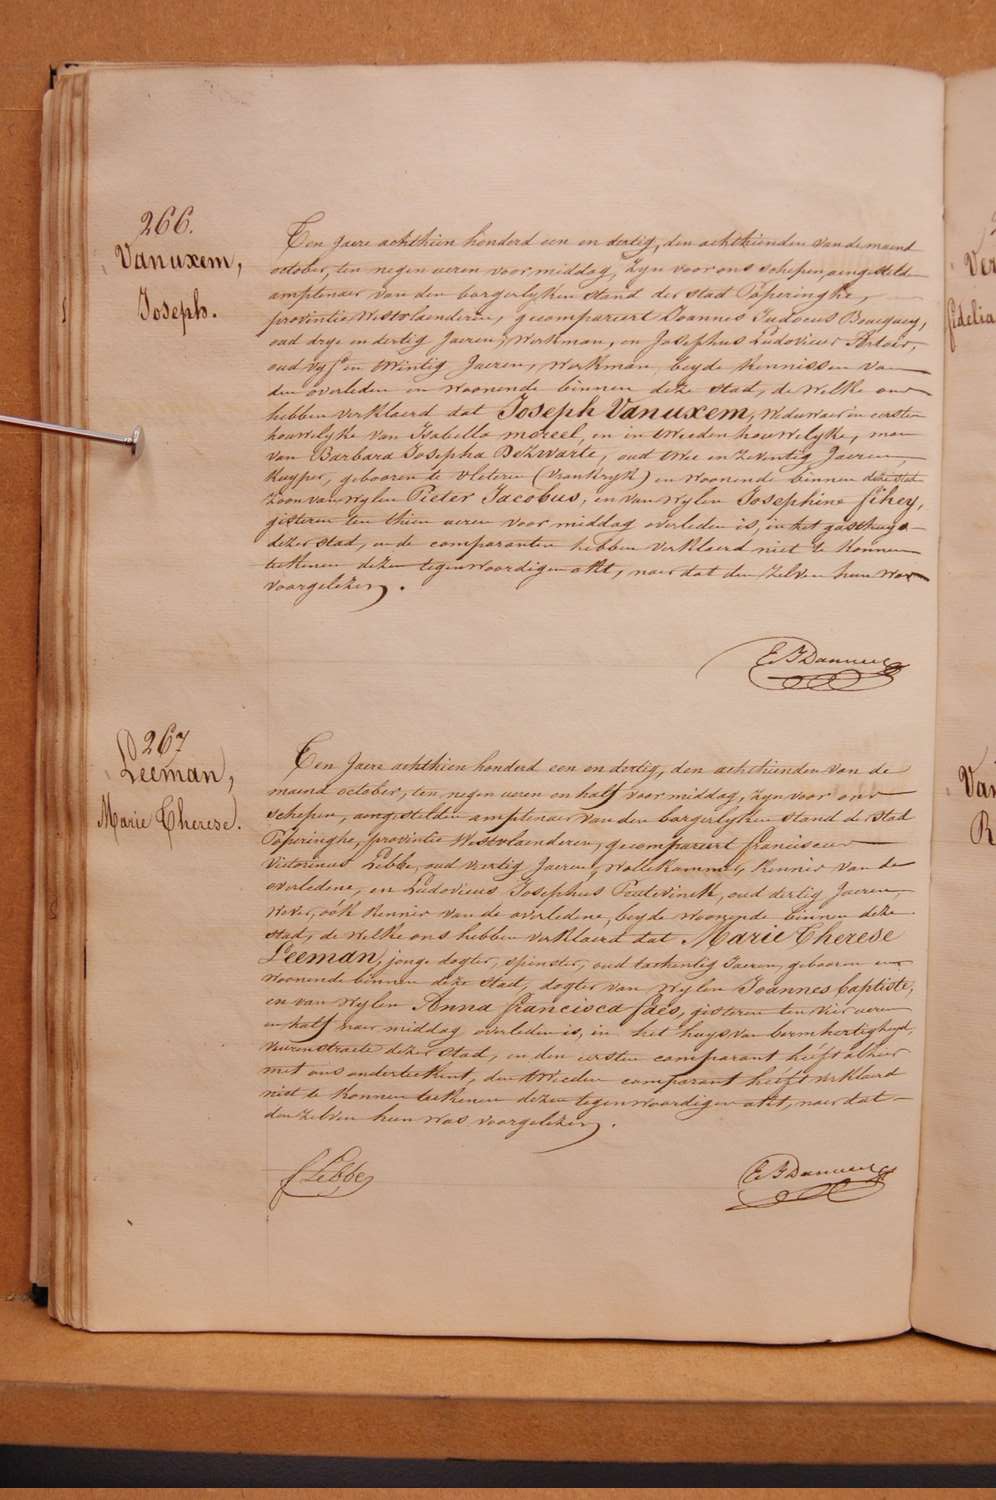 266.
Vanuxem,
Joseph.
Ten Jaere achthien honderd een en dertig, den achthienden van de maend
october, ten negen ueren voormiddag, zyn voor ons schepen, aengestelden
amptenaer van den borgerlyken stand der stad Poperinghe,
provintie Westvlaenderen, gecompareert Joannes Judocus
oud drye en dertig Jaeren, Werkman, en Josephus Ludovicus
oud vyf en twintig Jaeren, Werkman, beyde kennissen van
den overleden en woonende binnen deze stad, de welke ons
hebben verklaerd dat Joseph Vanuxem, Weduwaer in eersten
houwelyke van Isabella moreel, en in tweeden houwelyke, man
van Barbara Josepha DeZwarte, oud twee en zeventig Jaeren,
Kuyper, geboren te vleteren (Vrankryk) en woonende binnen deze stad
Zoon van wylen Pieter Jacobus, en van wylen Josephine fihey,
gisteren ten thien ueren voormiddag overleden is, in het gasthuys
dezer stad, en de comparanten hebben verklaerd niet te konnen
teekenen dezen tegenwoordigen akt, naer dat den zelven hun was
voorgelezen.
267
Leeman,
Marie Therese.
Ten Jaere achthien honderd een en dertig, den achthienden van de
maend october, ten negen ueren en half voormiddag, zyn voor ons
schepen, aengestelden amptenaer van den borgerlyken stand der stad
Poperinghe, provintie Westvlaenderen, gecompareert franciscus
Victorinus Lebbe, oud veertig Jaeren, Wollekammer, kennis van de
overledene, en Ludovicus Josephus Poutevinck, oud dertig Jaeren,
Wever, oók kennis van de overledene, beyde woonende binnen deze
stad, de welke ons hebben verklaerd dat Marie Therese
Leeman, jonge dogter, spinster, oud tachentig Jaeren, geboren en
woonende binnen deze stad, dogter van wylen Joannes baptiste,
en van wylen Anna francisca faes, gisteren ten vier ueren
en half naer middag overleden is, in het huys van bermhertigheyd,
veurenstraete dezer stad, en den eersten comparant heéft alhier
met ons onderteekent, den tweeden comparant heéft verklaerd
niet te konnen teekenen dezen tegenwoordigen akt, naer dat
den zelven hun was voorgelezen.
f Lebbe